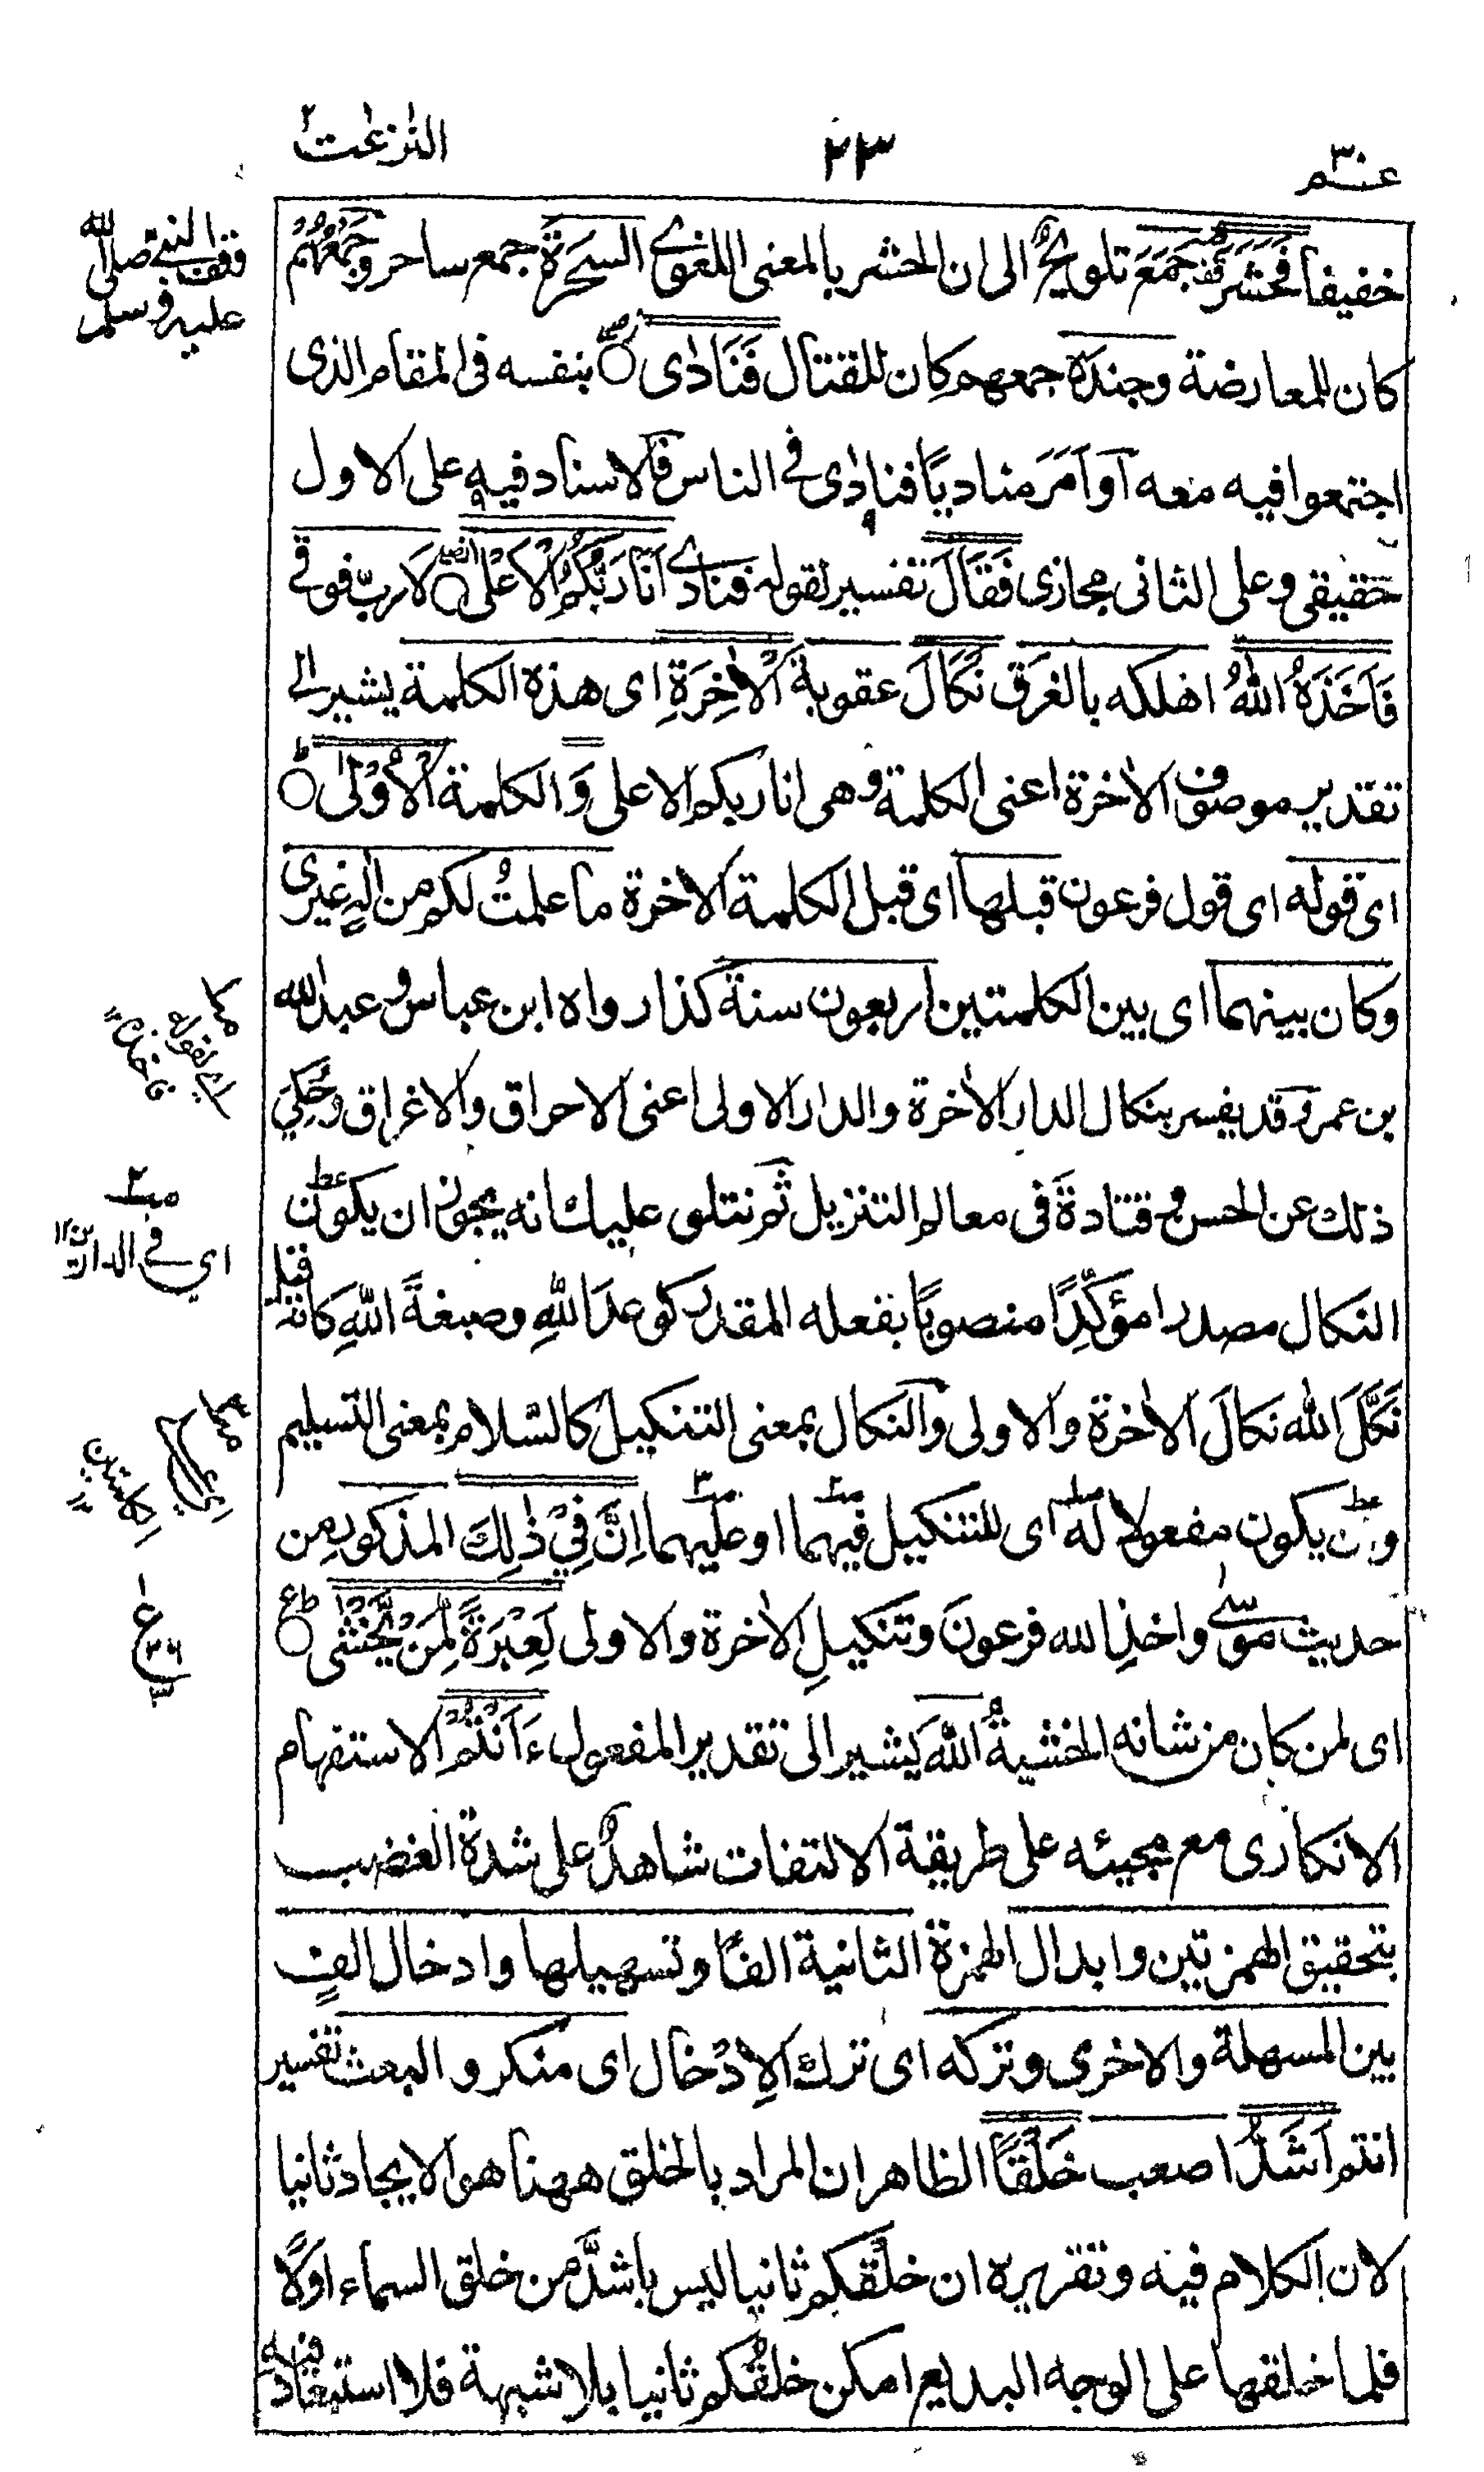 عـــم ٣٠
٢٣
النّٰزعٰت
خفيفا فَحَشَرَ جَمَعَ تلويحٌ الى ان الحشر بالمعنى اللغوي السَحَرَةَ جمع ساحر وجَمْعُهُمْ
كان للمعارضة وجندَه جمعهم كان للقتال فَنَادٰى بنفسه فى المقام الذى
اجتمعوا فيه معه اَو اَمَرَ مناديًا فنادٰى في الناس فالاسناد فيه على الاول
حقيقى وعلى الثانى مجازى فَقَالَ تفسير لقوله فنادٰے اَنَا رَبُّكُمُ الْاَعْلٰى لا ربّ فوقي
فَاَخَذَهُ اللهُ اهلكه بالغرق نَكَالَ عقوبة الْاٰخِرَةِ اى هذه الكلمة يشير الى
تقدير موصوف الاٰخرة اعنى الكلمة وهى انا ربكم الاعلى وَ الكلمة الْاُوْلٰى
اى قوله اى قول فرعون قبلها اى قبل الكلمة الاخرة ما علمتُ لكم من الٰهٍ غيرى
وكان بينهما اى بين الكلمتين اربعون سنة كذا رواه ابن عباس و عبد الله
بن عمرو وقد يفسر بنكال الدار الاٰخرة والدار الاولى اعنى الاحراق والاغراق وحُكِيَ
ذلك عن الحسن وقتادةَ فى معالم التنزيل ثم نتلو عليك انه يجوز ان يكون
النكال مصدرا مؤكِّدًا منصوبًا بفعله المقدر كوعدَ اللهِ وصبغةَ اللهِ كانه قيل
نَكَّلَ الله نكالَ الاٰخرة والاولى والنكال بمعنى التنكيل كالسّلام بمعنى التسليم
وان يكون مفعولا له اى للتنكيل فيهما او عليهما اِنَّ فِيْ ذٰلِكَ المذكور مِن
حديث موسٰى واخذِ الله فرعونَ وتنكيلِ الاٰخرة والاولى لَعِبْرَةً لِّمَنْ يَّخْشٰى
اى لمن كان من شانه الخشيةُ اللهَ يشير الى تقدير المفعول ءَاَنْتُمْ الاستفهام
الانكارى مع مجيئه على طريقة الالتفات شاهدٌ على شدة الغضب
بتحقيق الهمزتين وابدال الهمزة الثانية الفًا وتسهيلها وادخال الفٍ
بين المسهلة والاخرى وتركه اى ترك الاِدْخال اى منكرو البعث تفسير
انتم اَشَدُّ اصعب خَلْقًا الظاهر ان المراد بالخلق ههنا هو الايجاد ثانيا
لان الكلام فيه وتقريره ان خلقَكم ثانيا ليس باشدَّ من خلق السماء اوّلًا
فلما خلقها على الوجه البديع امكن خلقُكم ثانيا بلا شبهة فلا استبعاد فيه
وقف النبي صلى الله
عليه وسلم
اي لقوله
فاخذه ١٢
اي في الدارين ١٢
ع